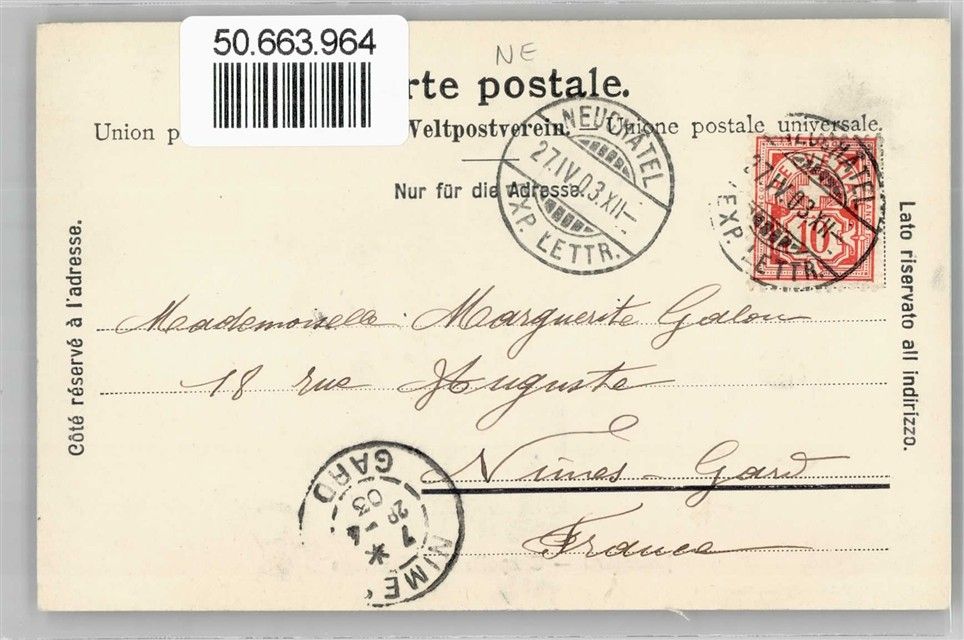 50.663.964
NE
rte postale.
Union p Weltpostverein. Unione postale universale.
Nur für die Adresse.
NEUCHÂTEL
27.IV.03.XII-
EXP. LETTR.
NEUCHÂTEL
27.IV.03.XII-
EXP. LETTR.
10
Côté réservé à l'adresse.
Lato riservato all indirizzo.
Mademoiselle Marguerite Galou
18 rue Auguste
Nimes - Gard
France
NIMES
7 *
28 - 4
03
GARD